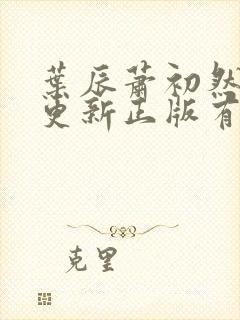 葉辰蕭初然
更新正版有
克里